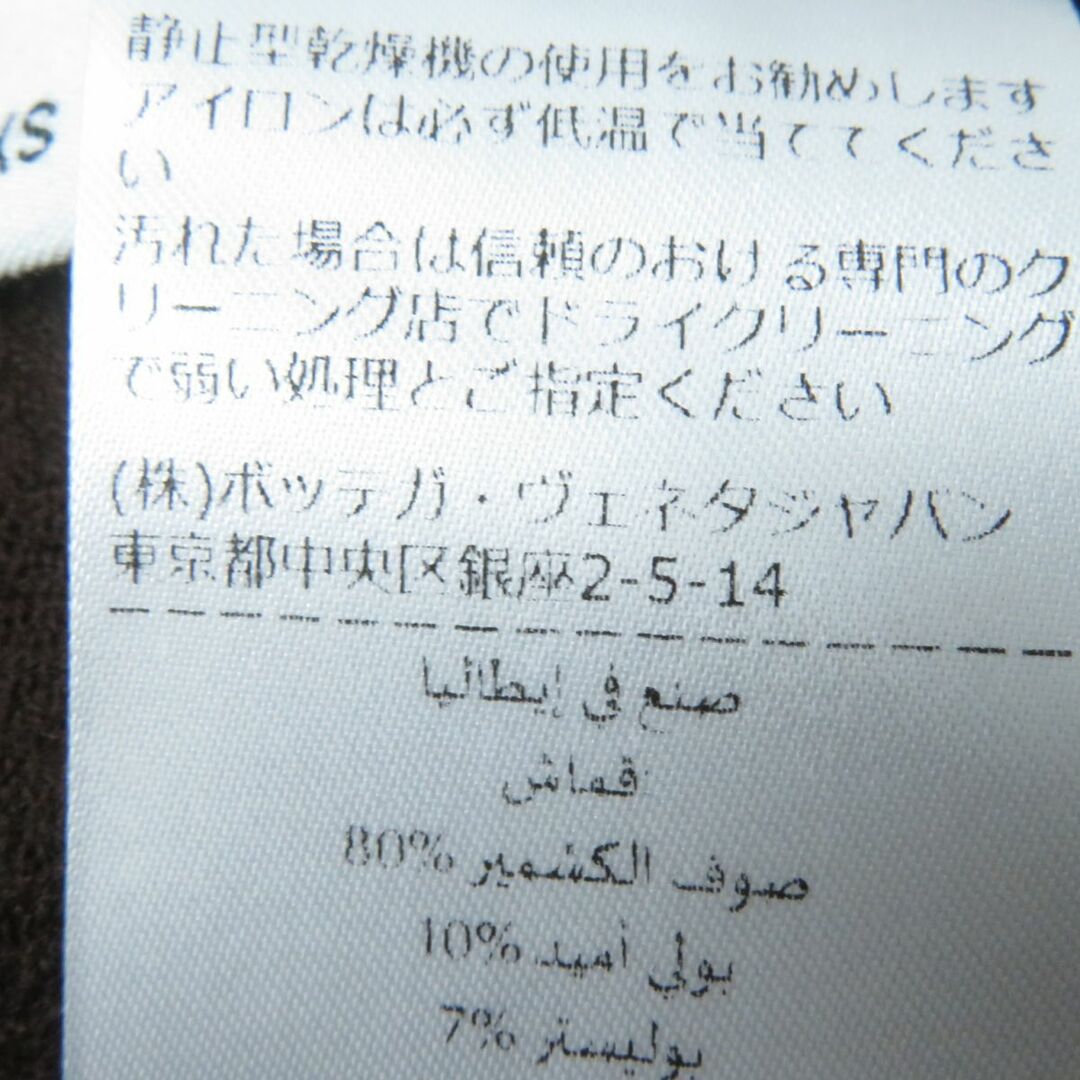 静止型乾燥機の使用をお勧めします
アイロンは必ず低温で当ててくださ
い
汚れた場合は信頼のおける専門のク
リーニング店でドライクリーニング
で弱い処理とご指定ください
(株)ボッテガ・ヴェネタジャパン
東京都中央区銀座2-5-14
صنع في إيطاليا
قماش
صوف الكشمير 80%
بولي أميد 10%
بوليستر 7%